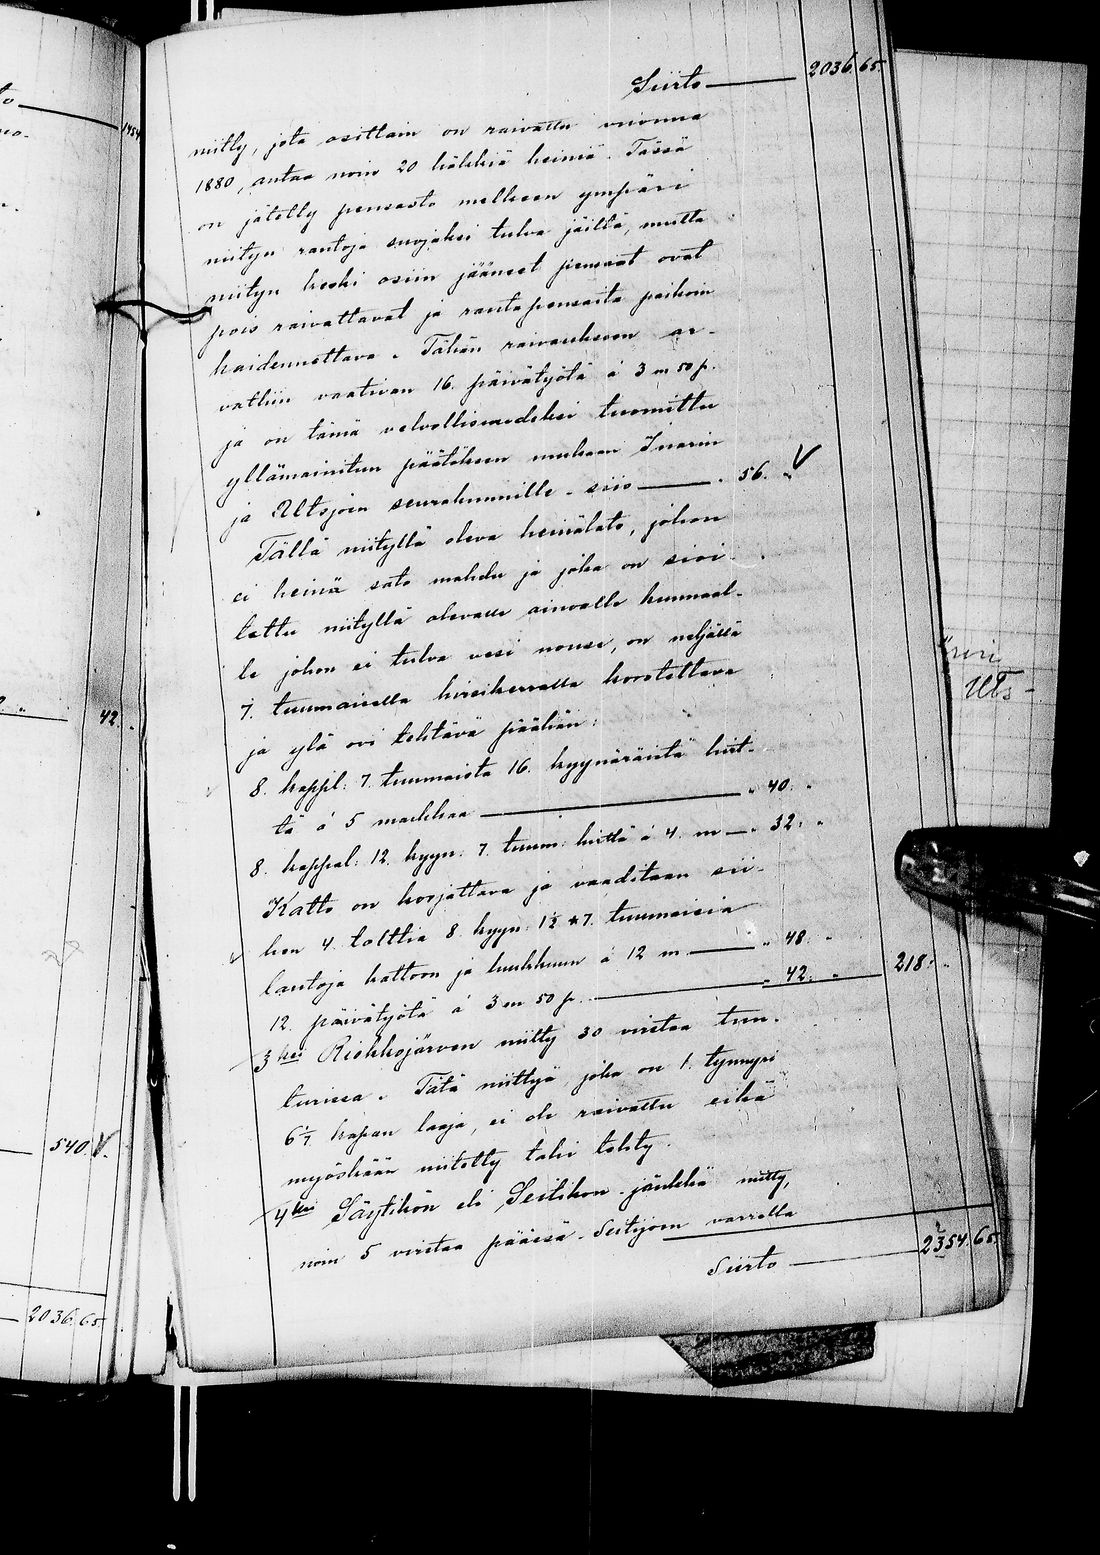 Siirto — 2036.65.
niitty, jota osittain on raivattu vuonna
1880, antaa noin 20 häkkiä heiniä. Tässä
on jätetty pensasto melkeen ympäri
niityn rantoja suojaksi tulva jäiltä, mutta
niityn keski osiin jääneet pensaat ovat
pois raivattavat ja rantapensaita paikoin
haidennettava. Tähän raivaukseen ar-
vattiin vaativan 16. päivätyötä á 3 m 50 p.
ja on tämä velvollisuudeksi tuomittu
yllämainitun päätöksen mukaan Inarin
ja Utsjoen seurakunnille. siis — „ 56. „
Tällä niityllä oleva heinälato, johon
ei heinä sato mahdu ja joka on sioi-
tettu niityllä olevalle ainoalle kummal-
le johon ei tulva vesi nouse, on neljällä
7. tuumaisella hirsikerralla korotettava
ja ylä ovi tehtävä päähän:
8. kappl: 7. tuumaista 16. kyynäräistä hirt-
tä á 5 markkaa — „ 40. „
8. kappal: 12. kyyn: 7. tuum: hirttä á 4. m — „ 32: „
Katto on korjattava ja vaaditaan sii-
hen 4. tolttia 8. kyyn: 1½ * 7. tuumaisia
lautoja kattoon ja luukkuun á 12 m. — „ 48. „
12. päivätyötä á 3 m 50 p. — „ 42. „ — 218: „
3ksi Riekkojärven niitty 30 virstaa tun-
turissa. Tätä niittyä, joka on 1. tynnyri
6 1/7 kapan laaja, ei ole raivattu eikä
myöskään niitetty talvi tehty.
4ksi Säytikön eli Seitikon-jänkkä niitty,
noin 5 virstaa päässä Seitijoen varrella
Siirto — 2354.65
1454
42.
540.
2036.65
Uts-